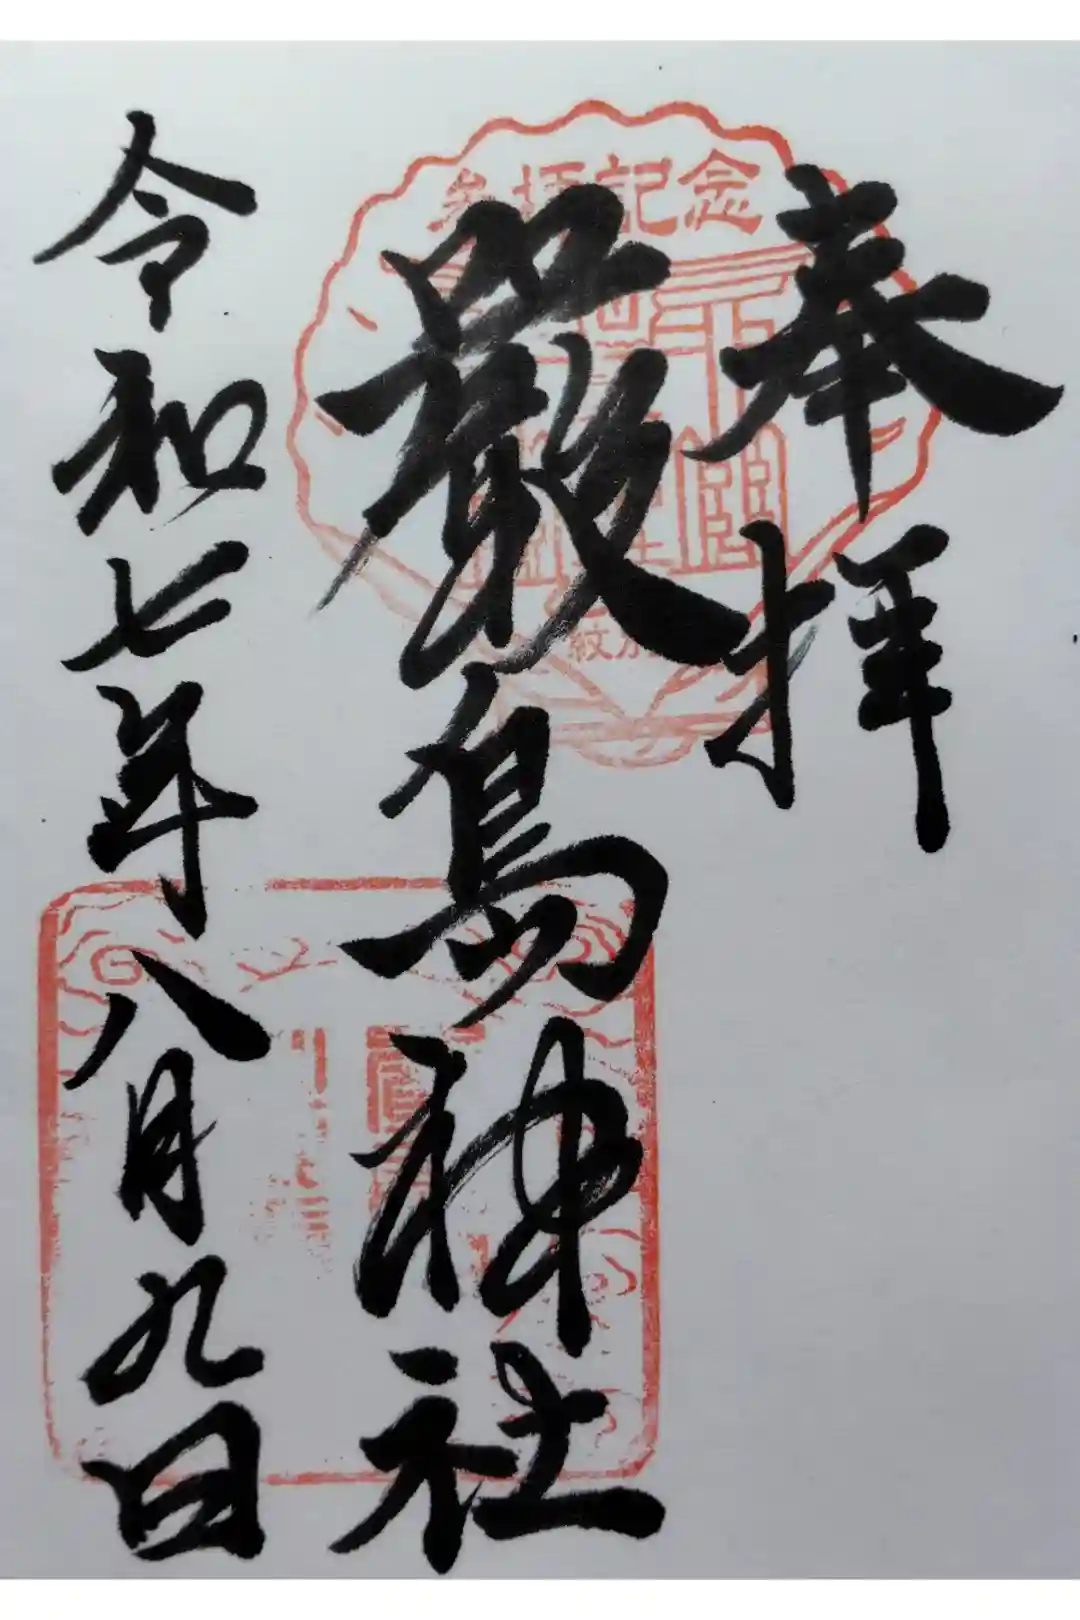 奉拝
参拝記念
嚴島神社
令和七年八月九日